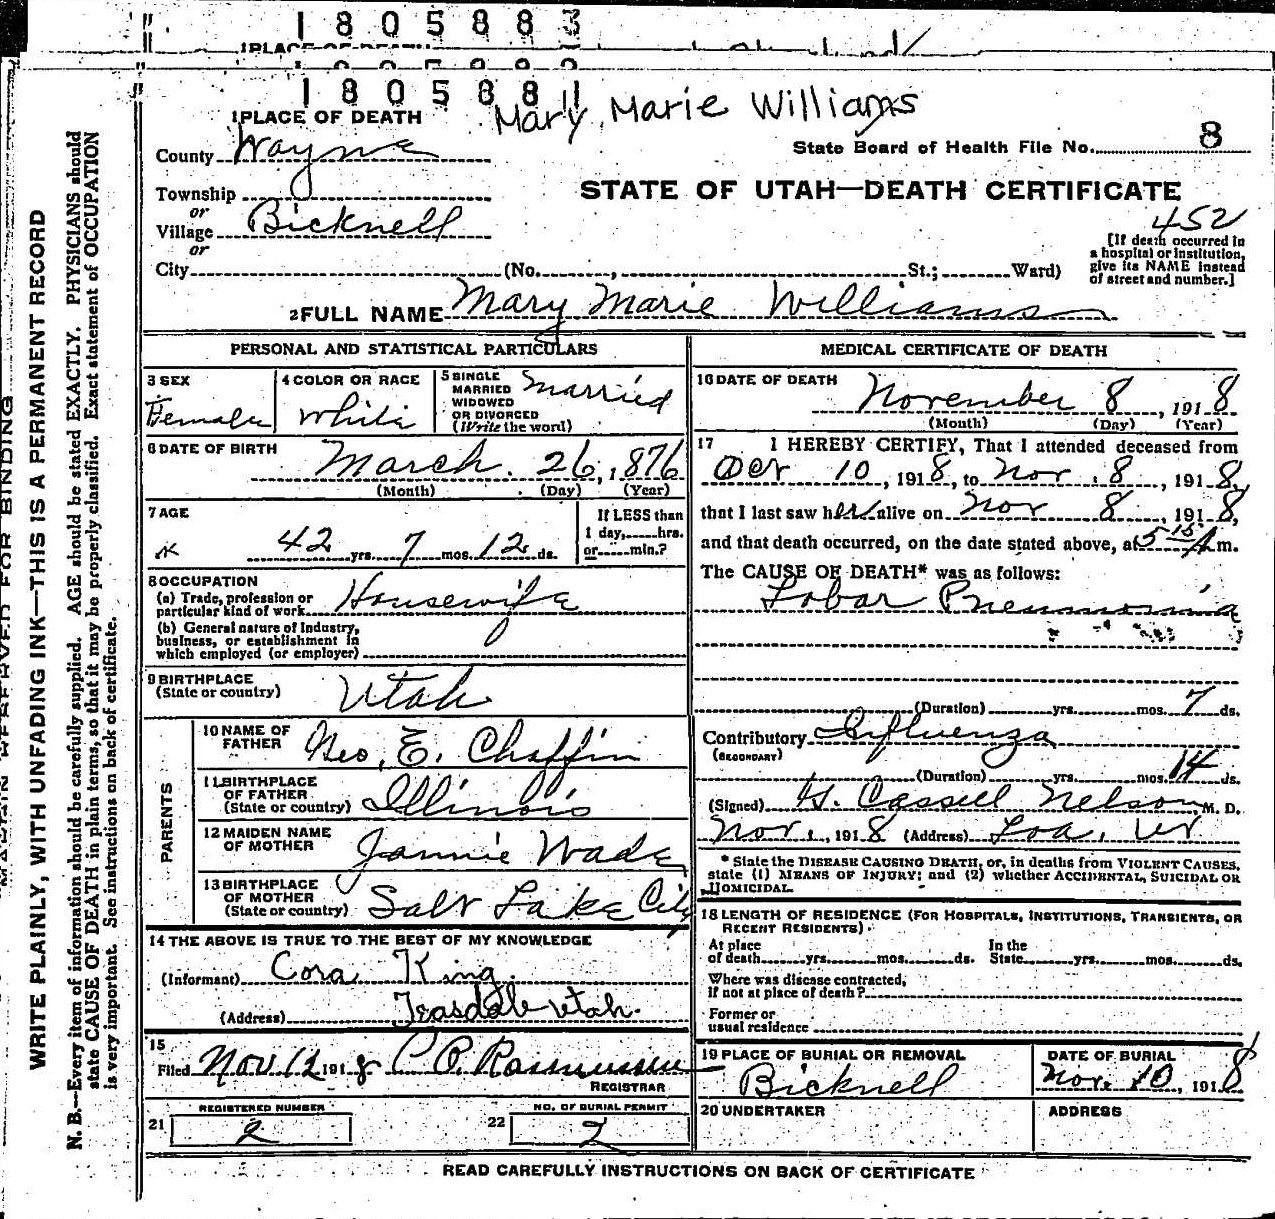 1805883
1 PLACE OF DEATH
1805881
Mary Marie Williams
1 PLACE OF DEATH
State Board of Health File No. 8
County Wayne
STATE OF UTAH—DEATH CERTIFICATE
Township
or
Village Bicknell
or
452
[If death occurred in
a hospital or institution,
give its NAME instead
of street and number.]
City (No. , St.; Ward)
2 FULL NAME Mary Marie Williams
PERSONAL AND STATISTICAL PARTICULARS
3 SEX
Female
4 COLOR OR RACE
White
5 SINGLE
MARRIED
WIDOWED
OR DIVORCED
(Write the word)
Married
6 DATE OF BIRTH
March 26, 1876
(Month) (Day) (Year)
7 AGE
42 yrs. 7 mos. 12 ds.
If LESS than
1 day, hrs.
or min.?
8 OCCUPATION
(a) Trade, profession or
particular kind of work Housewife
(b) General nature of Industry,
business, or establishment in
which employed (or employer)
9 BIRTHPLACE
(State or country) Utah
PARENTS
10 NAME OF
FATHER Geo. E. Chaffin
11 BIRTHPLACE
OF FATHER
(State or country) Illinois
12 MAIDEN NAME
OF MOTHER Jannie Wade
13 BIRTHPLACE
OF MOTHER
(State or country) Salt Lake City
14 THE ABOVE IS TRUE TO THE BEST OF MY KNOWLEDGE
(Informant) Cora King
(Address) Teasdale Utah.
15
Filed Nov 12 1918 C P. Rasmussen
REGISTRAR
21 REGISTERED NUMBER
2
22 NO. OF BURIAL PERMIT
2
MEDICAL CERTIFICATE OF DEATH
16 DATE OF DEATH
November 8, 1918
(Month) (Day) (Year)
17 I HEREBY CERTIFY, That I attended deceased from
Oct 10, 1918, to Nov. 8, 1918,
that I last saw her alive on Nov 8, 1918,
and that death occurred, on the date stated above, at 5 15 A m.
The CAUSE OF DEATH* was as follows:
Lobar Pneumonia
(Duration) yrs. mos. 7 ds.
Contributory Influenza
(SECONDARY)
(Duration) yrs. mos. 14 ds.
(Signed) G. Cassell Nelson, M. D.
Nov., 1918 (Address) Loa, Ut
* State the DISEASE CAUSING DEATH, or, in deaths from VIOLENT CAUSES,
state (1) MEANS OF INJURY; and (2) whether ACCIDENTAL, SUICIDAL OR
HOMICIDAL.
18 LENGTH OF RESIDENCE (FOR HOSPITALS, INSTITUTIONS, TRANSIENTS, OR
RECENT RESIDENTS).
At place In the
of death yrs. mos. ds. State yrs. mos. ds.
Where was disease contracted,
If not at place of death?
Former or
usual residence
19 PLACE OF BURIAL OR REMOVAL
Bicknell
DATE OF BURIAL
Nov. 10, 1918
20 UNDERTAKER
ADDRESS
READ CAREFULLY INSTRUCTIONS ON BACK OF CERTIFICATE
WRITE PLAINLY, WITH UNFADING INK—THIS IS A PERMANENT RECORD
N. B.—Every item of information should be carefully supplied. AGE should be stated EXACTLY. PHYSICIANS should
state CAUSE OF DEATH in plain terms, so that it may be properly classified. Exact statement of OCCUPATION
is very important. See instructions on back of certificate.